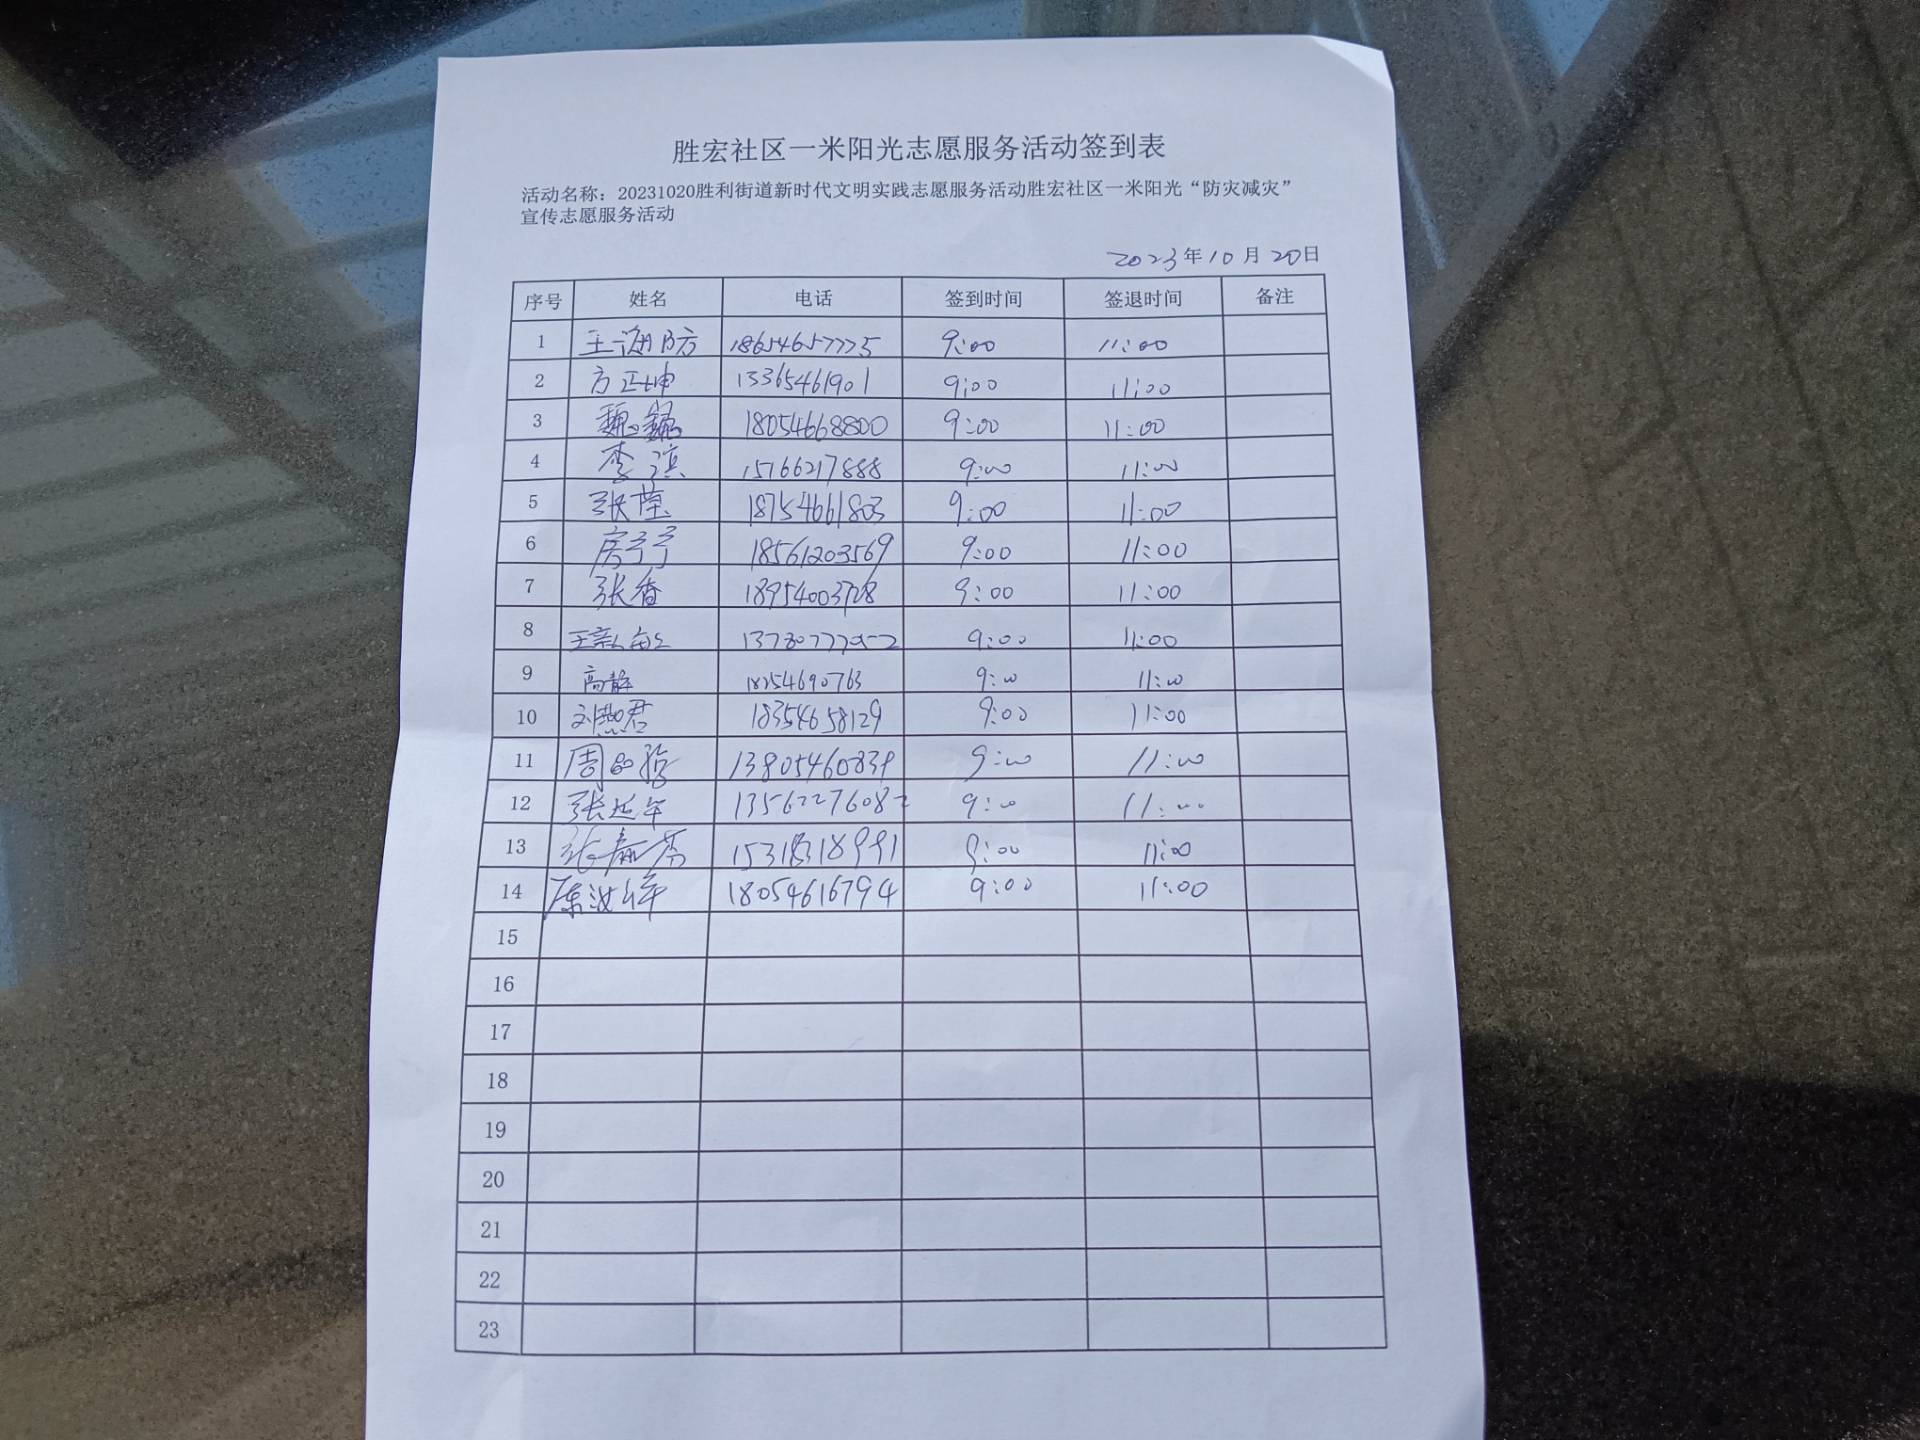 胜宏社区一米阳光志愿服务活动签到表
活动名称：20231020胜利街道新时代文明实践志愿服务活动胜宏社区一米阳光“防灾减灾”
宣传志愿服务活动
2023年10月20日
序号 姓名 电话 签到时间 签退时间 备注
1 王海防 18654657775 9:00 11:00
2 方正坤 13365461901 9:00 11:00
3 魏 18054668800 9:00 11:00
4 李滨 15166217888 9:00 11:00
5 张莹 18754661803 9:00 11:00
6 房宁宁 18561203569 9:00 11:00
7 张香 18954003728 9:00 11:00
8 王 9:00 11:00
9 高静 18254690763 9:00 11:00
10 刘燕君 18354658129 9:00 11:00
11 周 13805460839 9:00 11:00
12 张延年 13562276082 9:00 11:00
13 张春芳 15318318991 9:00 11:00
14 18054616794 9:00 11:00
15
16
17
18
19
20
21
22
23